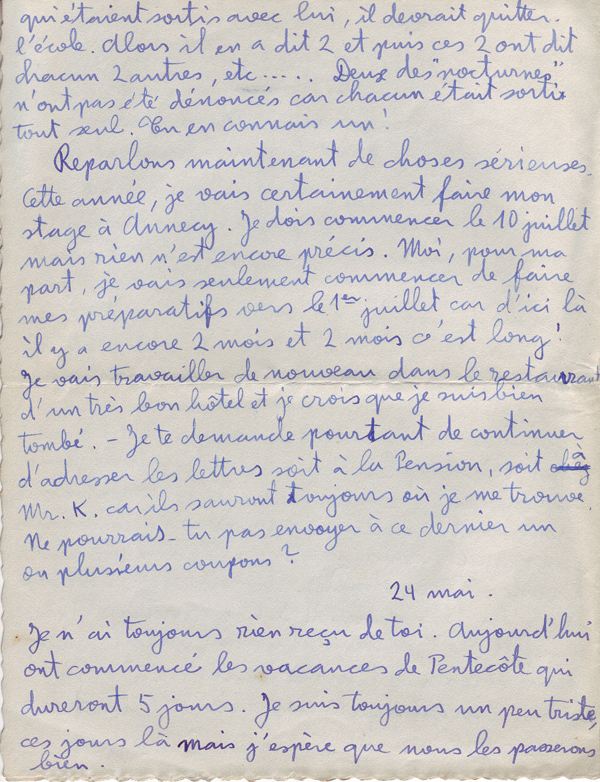 qui étaient sortis avec lui, il devrait quitter.
l'école. Alors il en a dit 2 et puis ces 2 ont dit
chacun 2 autres, etc..... Deux des "nocturnes"
n'ont pas été dénoncés car chacun était sorti
tout seul. Tu en connais un!
Reparlons maintenant de choses sérieuses.
Cette année, je vais certainement faire mon
stage à Annecy. Je dois commencer le 10 juillet
mais rien n'est encore précis. Moi, pour ma
part, je vais seulement commencer de faire
mes préparatifs vers le 1er juillet car d'ici là
il y a encore 2 mois et 2 mois c'est long!
Je vais travailler de nouveau dans le restaurant
d'un très bon hôtel et je crois que je suis bien
tombé. - Je te demande pourtant de continuer
d'adresser les lettres soit à la Pension, soit à
Mr. K. car ils sauront toujours où je me trouve.
Ne pourrais-tu pas envoyer à ce dernier un
ou plusieurs coupons?
24 mai.
Je n'ai toujours rien reçu de toi. Aujourd'hui
ont commencé les vacances de Pentecôte qui
dureront 5 jours. Je suis toujours un peu triste,
ces jours là mais j'espère que nous les passerons
bien.